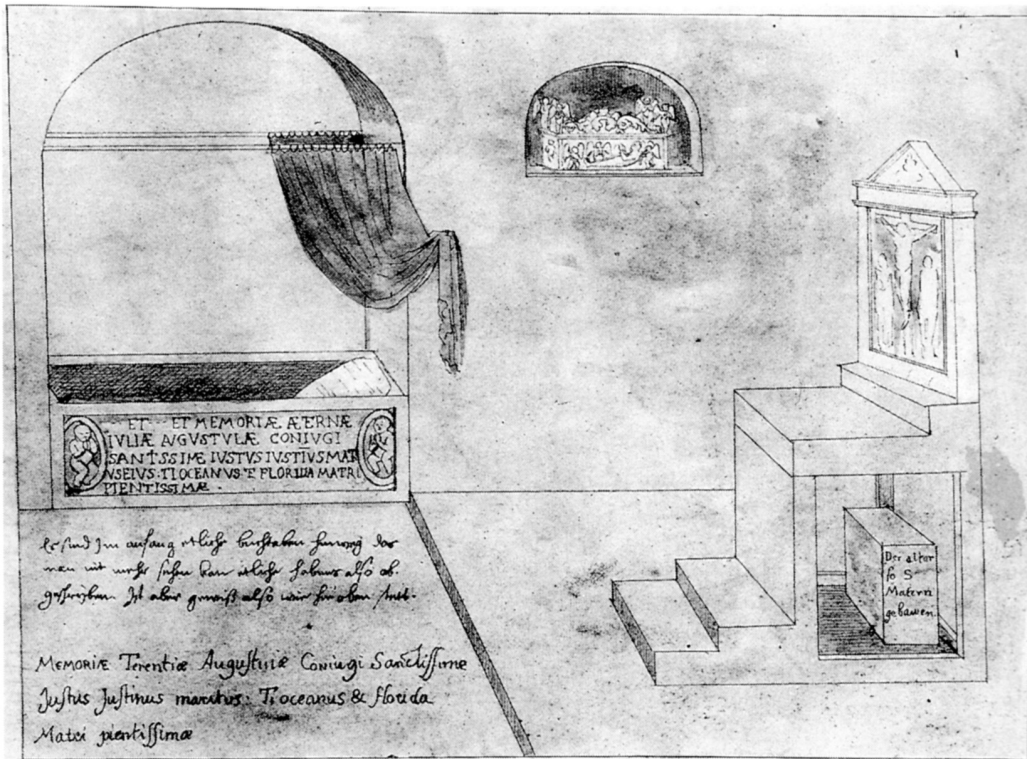 ET ET MEMORIÆ ÆTERNÆ
IVLIÆ AVGVSTVLÆ CONIVGI
SANTSSIMÆ IVSTVS IVSTIVS MAR
VSEIVS · TI OCEANVS · E FLORIDA MATRI
PIENTISSIMÆ ·
Es sind Im anfang etliche buchstaben hinweg das
man nit mehr sehen kan etliche habens also ab
geschryben Ist aber gewiß also wie hie oben stett.
MEMORIÆ Terentiæ Augustiæ Coniugi Sanctissime
Justus Justinus maritus: Ti oceanus & florida
Matri pientissimæ
Der altar
so S
Matern
gebawen